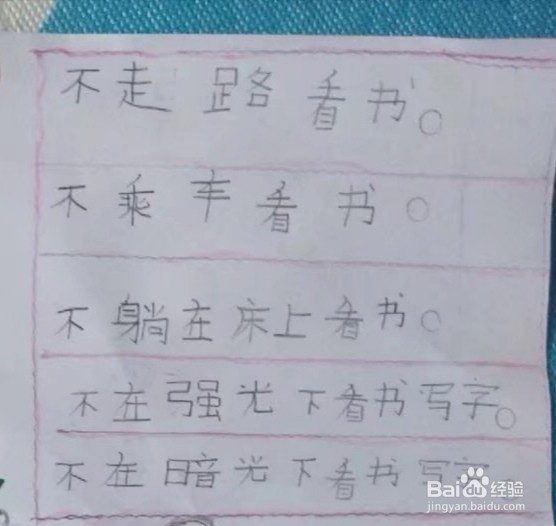 不走路看书。
不乘车看书。
不躺在床上看书。
不在强光下看书写字。
不在暗光下看书写字
Baidu经验
jingyan.baidu.com